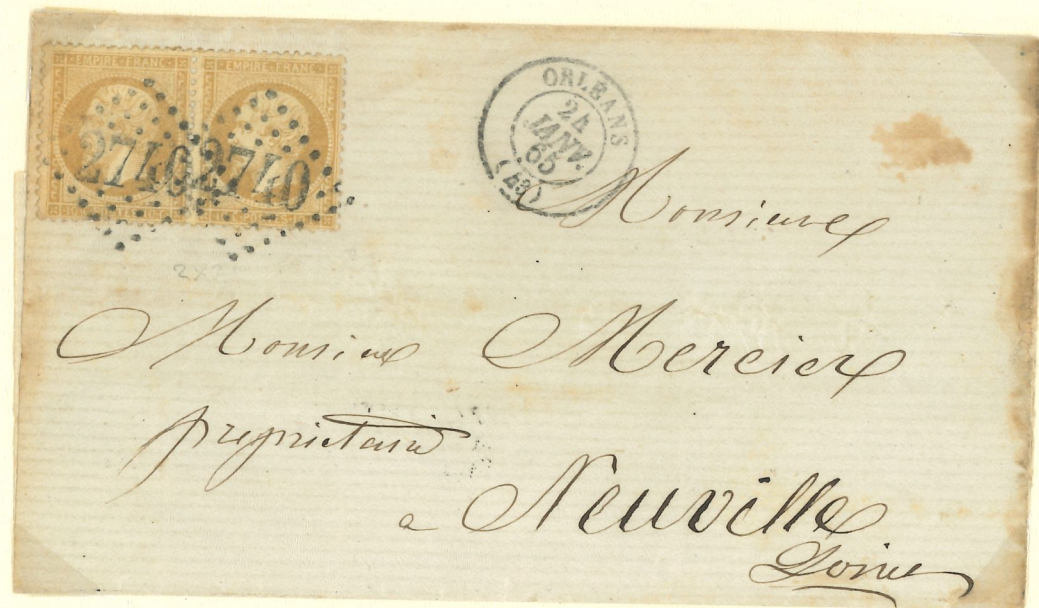 EMPIRE FRANC EMPIRE FRANC
2740 2740
ORLEANS
24
JANV.
65
(43)
Monsieur
Monsieur Mercier
propriétaire
a Neuville
Loiret
2x